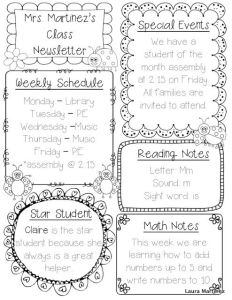 Mrs. Martinez's
Class
Newsletter
Weekly Schedule
Monday - Library
Tuesday - PE
Wednesday -Music
Thursday - Music
Friday - PE
*assembly @ 2:15
Star Student
Claire is the star
student because she
always is a great
helper
Special Events
We have a
student of the
month assembly
at 2:15 on Friday.
All families are
invited to attend.
Reading Notes
Letter: Mm
Sound: m
Sight word: is
Math Notes
This week we are
learning how to add
numbers up to 5 and
write numbers to 10.
Laura Martinez